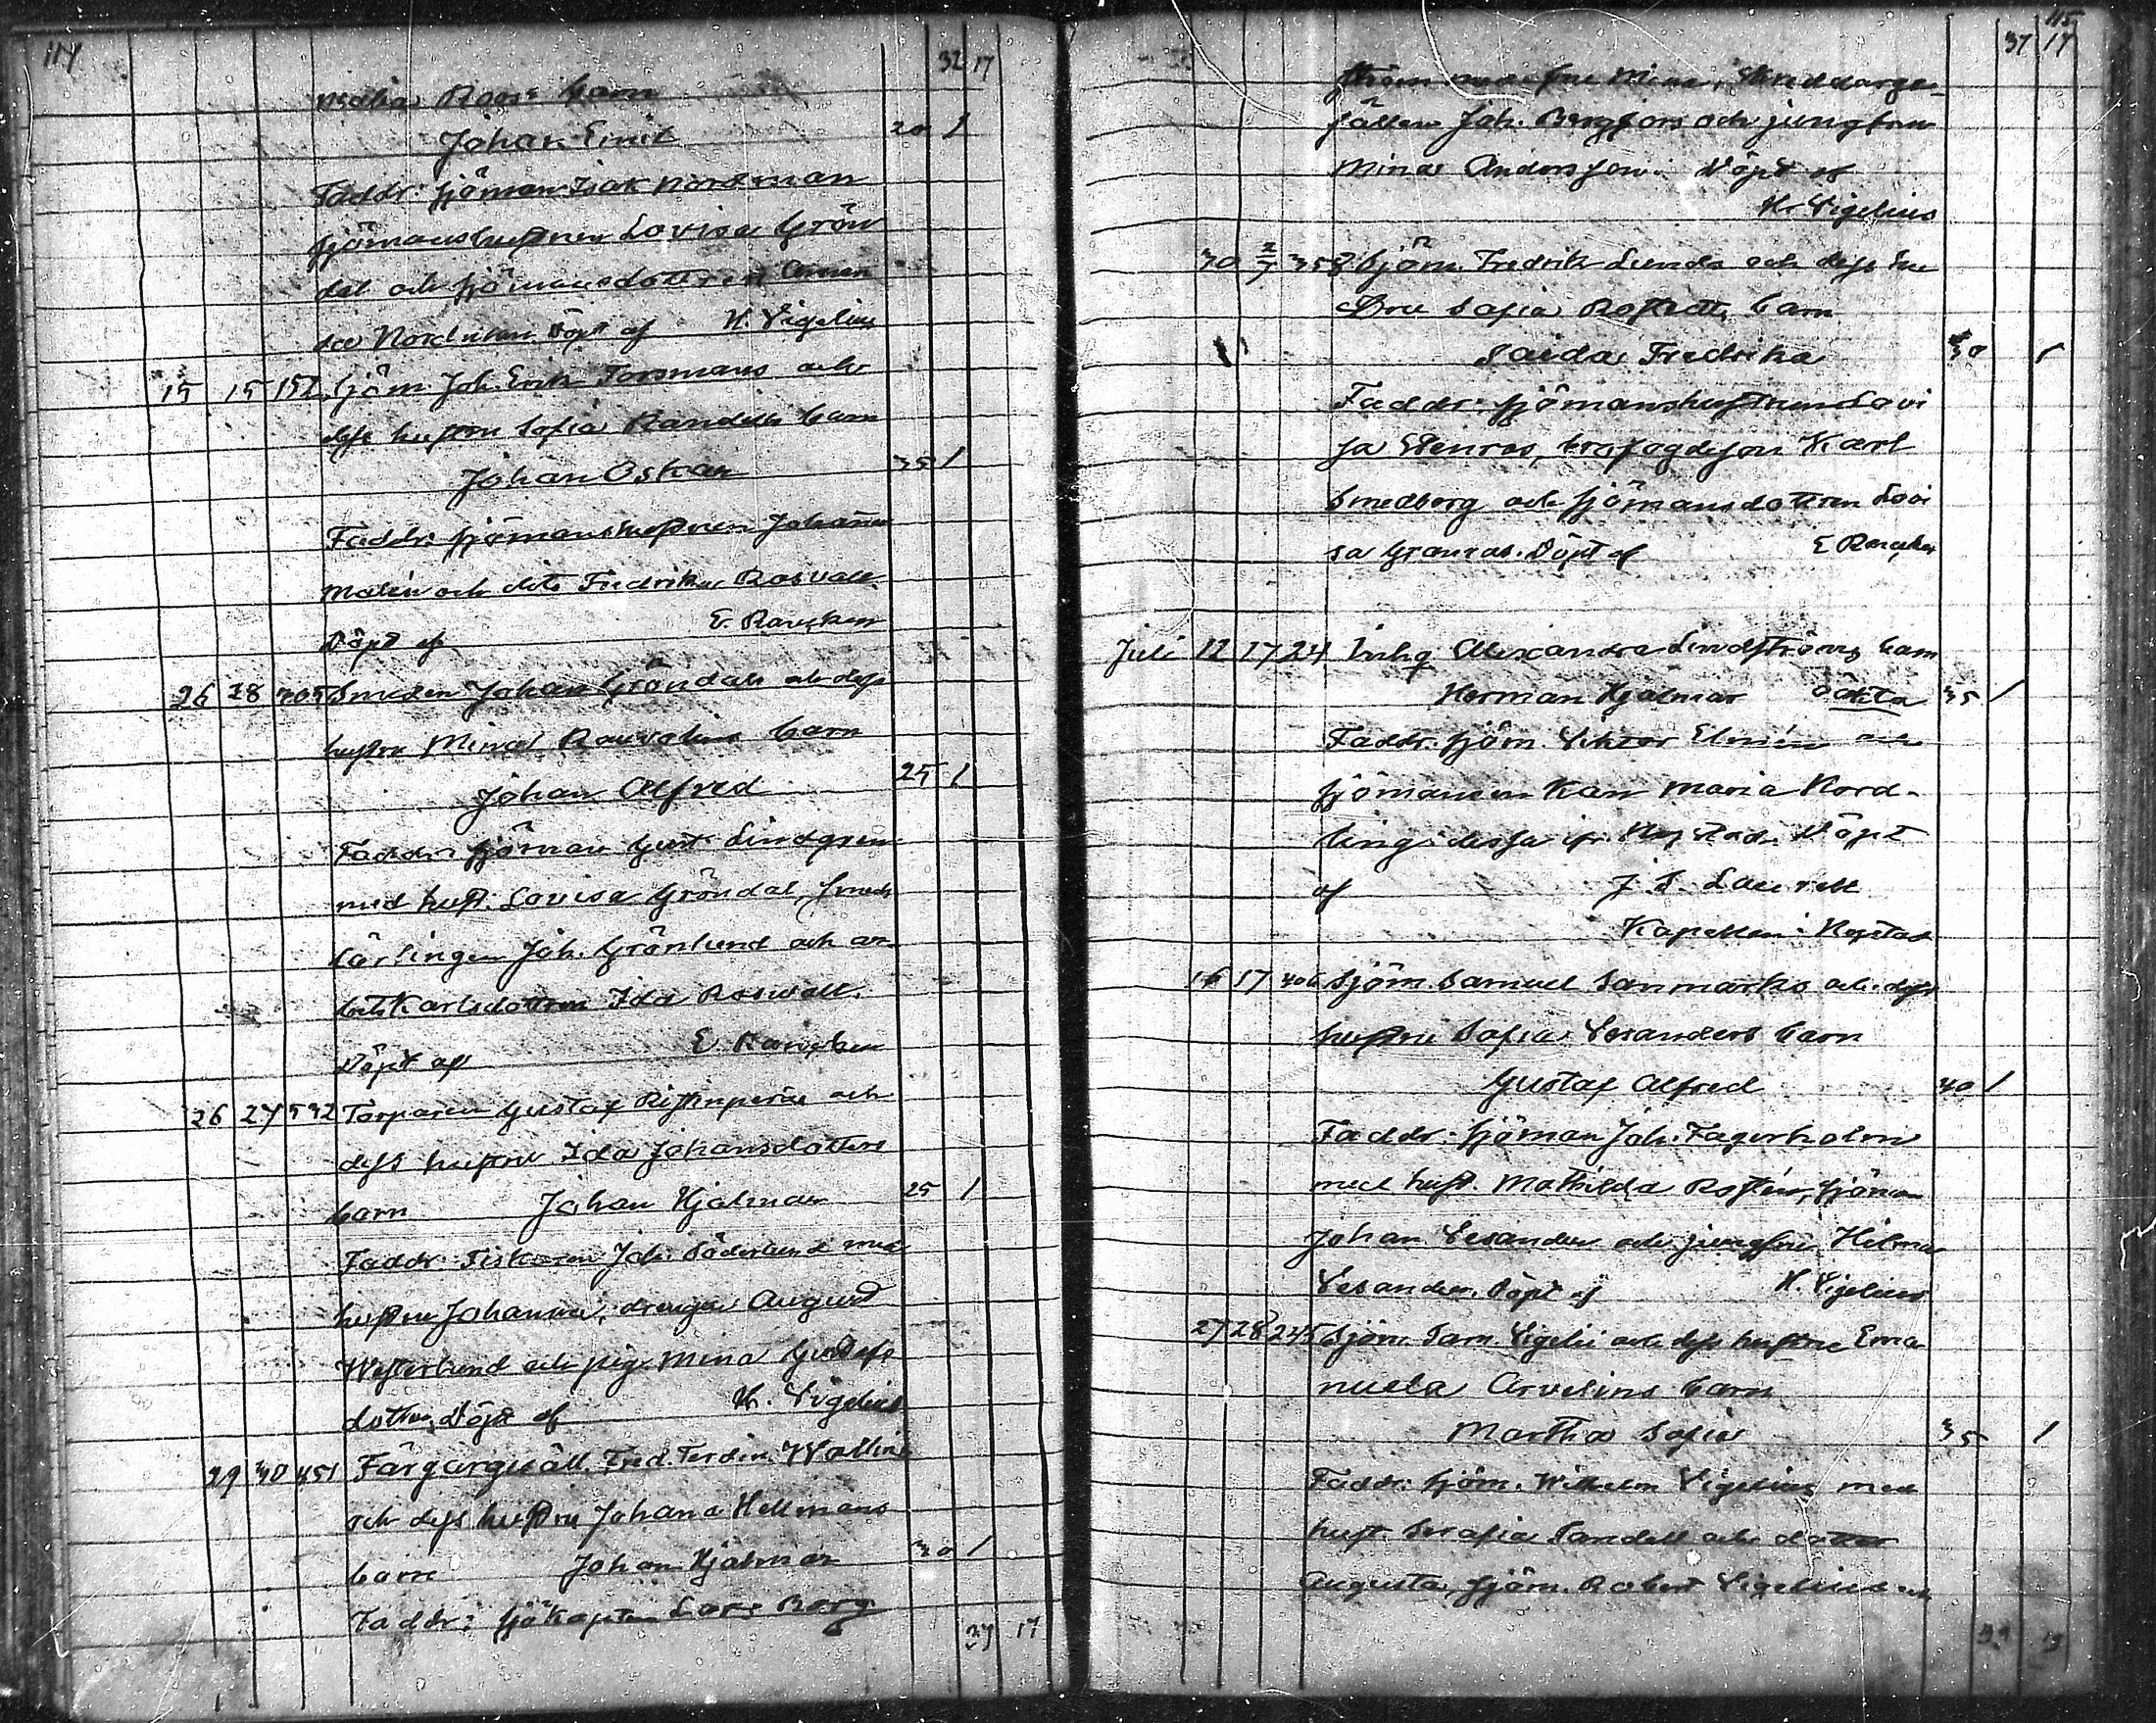 114 32 17
Roos's barn
Johan Emil 20 1
Faddr: sjöman Isak Nordman
sjömanshustrun Lovisa Grön
dal och sjömansdottren Aman
da Nordman. Döpt af H. Vigelius
15 15 152 Sjöm. Joh. Erik Forsmans och
dess hustru Sofia Randells barn
Johan Oskar 35 1
Faddr: sjömanshustrun Johanna
Malin och dito Fredrika Rosvall
Döpt af E. Rancken
26 28 305 Smeden Johan Gröndals och dess
hustru Mina barn
Johan Alfred 25 1
Faddr: sjöman Gust. Lindgren
med hust. Lovisa Gröndal, smeds
lärlingen Joh. Grönlund och ar
betskarlsdottren Ida Roswall.
Döpt af E. Rancken
26 27 592 Torparen Gustaf och
dess hustru Ida Johansdotters
barn Johan Hjalmar 25 1
Faddr: Fiskaren Joh. Söderlund med
hustru Johanna, drengen August
Westerlund och pig. Mina Gustafs
dotter. Döpt af H. Vigelius
29 30 451 Färgargesäll. Fred. Ferdin. Wallins
och dess hustru Johana Hellmans
barn Johan Hjalmar 30 1
Faddr: sjökapten Lars Borg
37 17
115
37 17
ström med fru Mina, Skreddarge
sällen Joh. Bergfors och jungfrun
Mina Andersson. Döpt af
H. Vigelius
30 2/7 358 Sjöm. Fredrik Lunds och dess hu
stru Sofia barn
Saida Fredrika 30 1
Faddr: sjömanshustrun Lovi
sa Stenros, brofogdeson Karl
Smedberg och sjömansdottren Lovi
sa Granros. Döpt af E Rancken
Juli 12 17 24 Inhg Alexandra Lindströms barn
Herman Hjalmar oäkta 35 1
Faddr: sjöm. Viktor Elmén och
sjömansen Maria Nord-
ling dessa Döpt
af J. F. Laurell
Kapellan i
16 17 406 Sjöm. Samuel Sanmarks och dess
hustru Sofia Vesanders barn
Gustaf Alfred 40 1
Faddr: sjöman Joh. Fagerholm
med hust. Mathilda Rostén, sjöman
Johan Vesander och jungfru Hilma
Vesander. Döpt af H. Vigelius
27 28 245 Sjöm. Sam. Vigelii och dess hustru Ema
nuela Arvelins barn
Martha Sofia 35 1
Faddr: sjöm. Wilhelm Vigelius med
hust. Serafia Sandell och dotter
Augusta, sjöm. Robert Vigelius